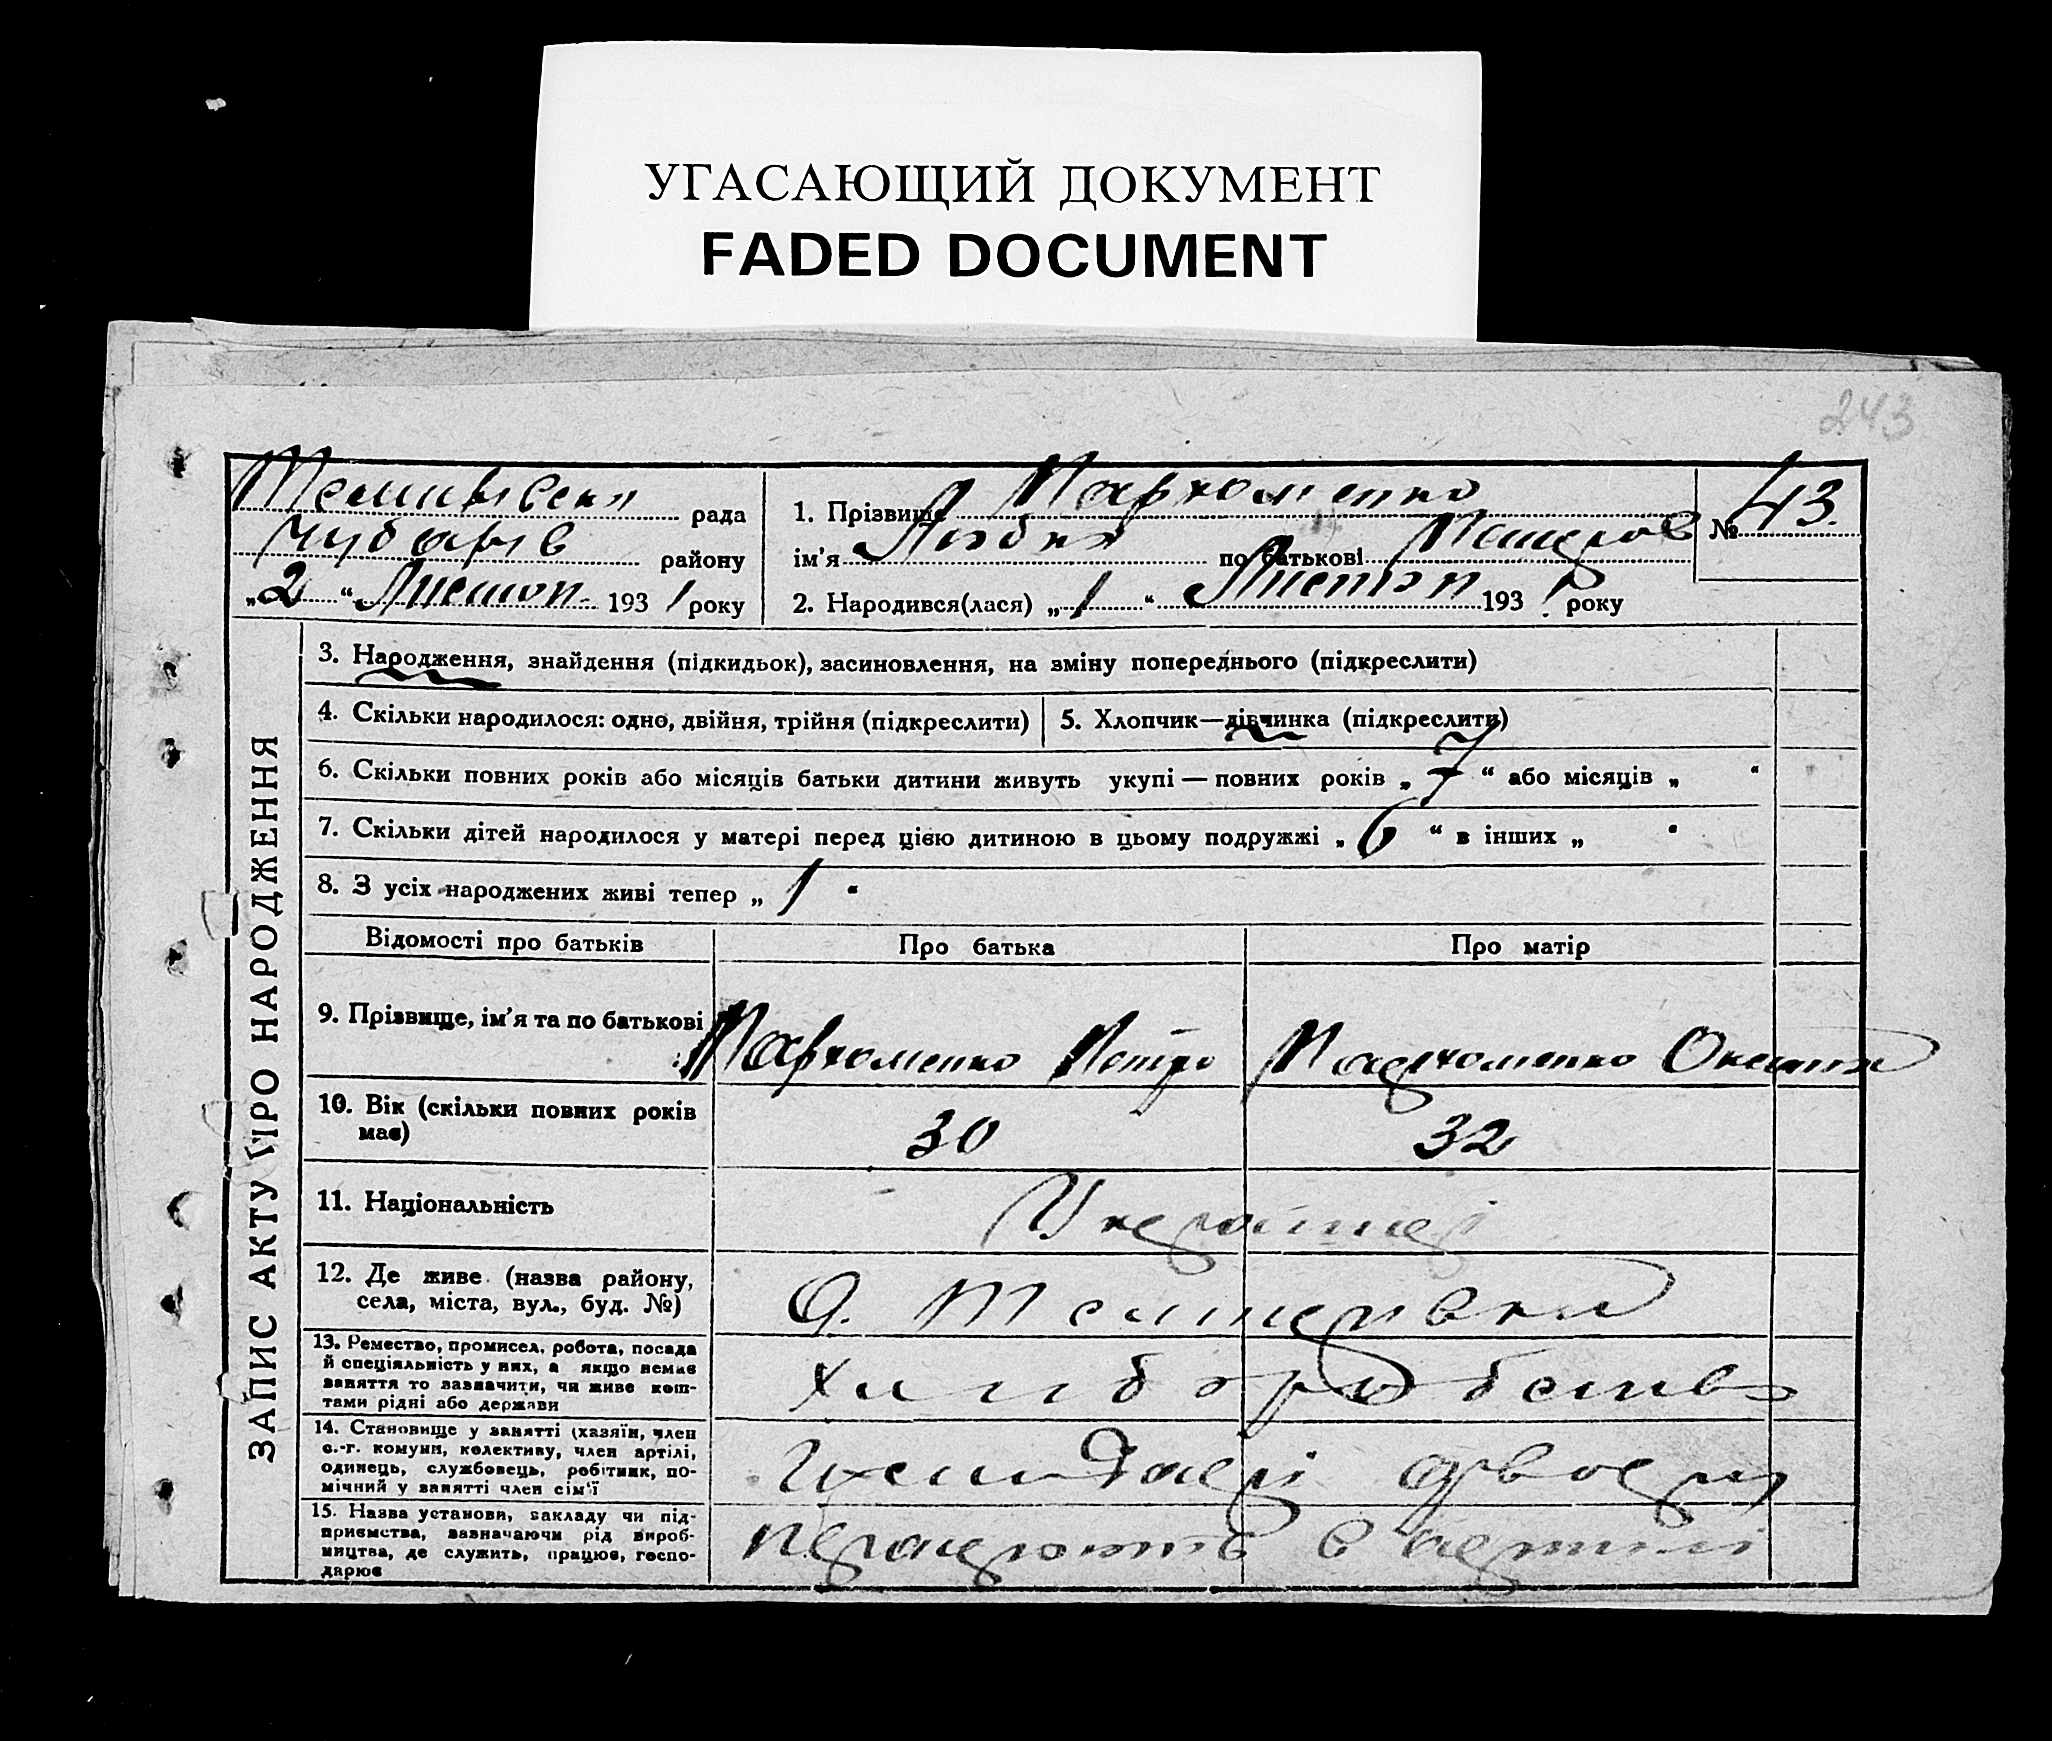 УГАСАЮЩИЙ ДОКУМЕНТ
FADED DOCUMENT
243
рада
Чубарів району
„2“ Листоп. 1931 року
1. Прізвище Пархоменко
ім'я по батькові Петров
№ 43.
2. Народився(лася) „1“ Листоп 1931 року
ЗАПИС АКТУ ПРО НАРОДЖЕННЯ
3. Народження, знайдення (підкидьок), засиновлення, на зміну попереднього (підкреслити)
4. Скільки народилося: одно, двійня, трійня (підкреслити)
5. Хлопчик—дівчинка (підкреслити)
6. Скільки повних років або місяців батьки дитини живуть укупі — повних років „7“ або місяців „ “
7. Скільки дітей народилося у матері перед цією дитиною в цьому подружжі „6“ в інших „ “
8. З усіх народжених живі тепер „1“
Відомості про батьків
Про батька
Про матір
9. Прізвище, ім'я та по батькові
Пархоменко Петро
Пархоменко Оксана
10. Вік (скільки повних років
має)
30
32
11. Національність
Українці
12. Де живе (назва району,
села, міста, вул., буд. №)
С.
13. Ремество, промисел, робота, посада
й спеціяльність у них, а якщо немає
заняття то зазначити, чи живе кош-
тами рідні або держави
Хліборобство
14. Становище у занятті (хазяїн, член
с.-г. комуни, колективу, член артілі,
одинець, службовець, робітник, по-
мічний у занятті член сім'ї
15. Назва установи, закладу чи під-
приємства, зазначаючи рід вироб-
ництва, де служить, працює, госпо-
дарює
працюють в артілі